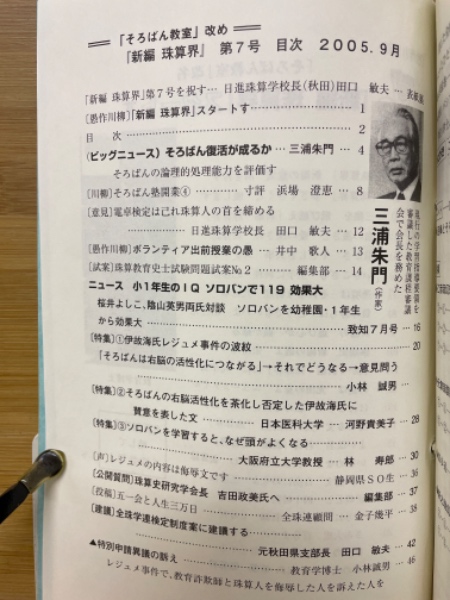 「そろばん教室」改め
「新編 珠算界」 第７号 目次 ２００５.９月
「新編 珠算界」第７号を祝す… 日進珠算学校長(秋田)田口 敏夫 …表紙裏
〔愚作川柳〕「新編 珠算界」スタートす…………… 1
目 次 …………… 2
(ビッグニュース) そろばん復活が成るか … 三浦朱門 … 4
そろばんの論理的処理能力を評価す
〔川柳〕そろばん塾開業④ ……… 寸評 浜場 澄恵 … 8
〔意見〕電卓検定は己れ珠算人の首を締める
…………… 日進珠算学校長 田口 敏夫 … 12
〔愚作川柳〕ボランティア出前授業の愚 … 井中 歌人 … 13
〔試案〕珠算教育史士試験問題試案№２ ……… 編集部 … 14
ニュース 小１年生のＩＱ ソロバンで１１９ 効果大
桜井よしこ、陰山英男両氏対談 ソロバンを幼稚園・１年生
から効果大 …………… 致知７月号 … 16
〔特集〕①伊故海氏レジュメ事件の波紋 …………… 20
「そろばんは右脳の活性化につながる」→それでどうなる→意見問う
…………… 小林 誠男 …
〔特集〕②そろばんの右脳活性化を茶化し否定した伊故海氏に
賛意を表した文 ……… 日本医科大学 … 河野貴美子 … 28
〔特集〕③ソロバンを学習すると、なぜ頭がよくなる……………
…………… 大阪府立大学教授 … 林 寿郎 … 30
〔声〕レジュメの内容は侮辱文です …………… 静岡県ＳＯ生 … 36
〔公開質問〕珠算史研究学会長 吉田政美氏へ ……… 編集部 … 37
〔投稿〕五一会と人生三万日 …………… 全珠連顧問 … 金子幾平 … 38
〔建議〕全珠学連検定制度案に建議する……………
…………… 元秋田県支部長 田口 敏夫 … 42
▲特別申請異議の訴え …………… 教育学博士 小林誠男 … 46
レジュメ事件で、教育詐欺師と珠算人を侮辱した人を訴えた人を
三浦朱門(作家)
現行の学習指導要領を
審議した教育課程審議
会で会長を務めた